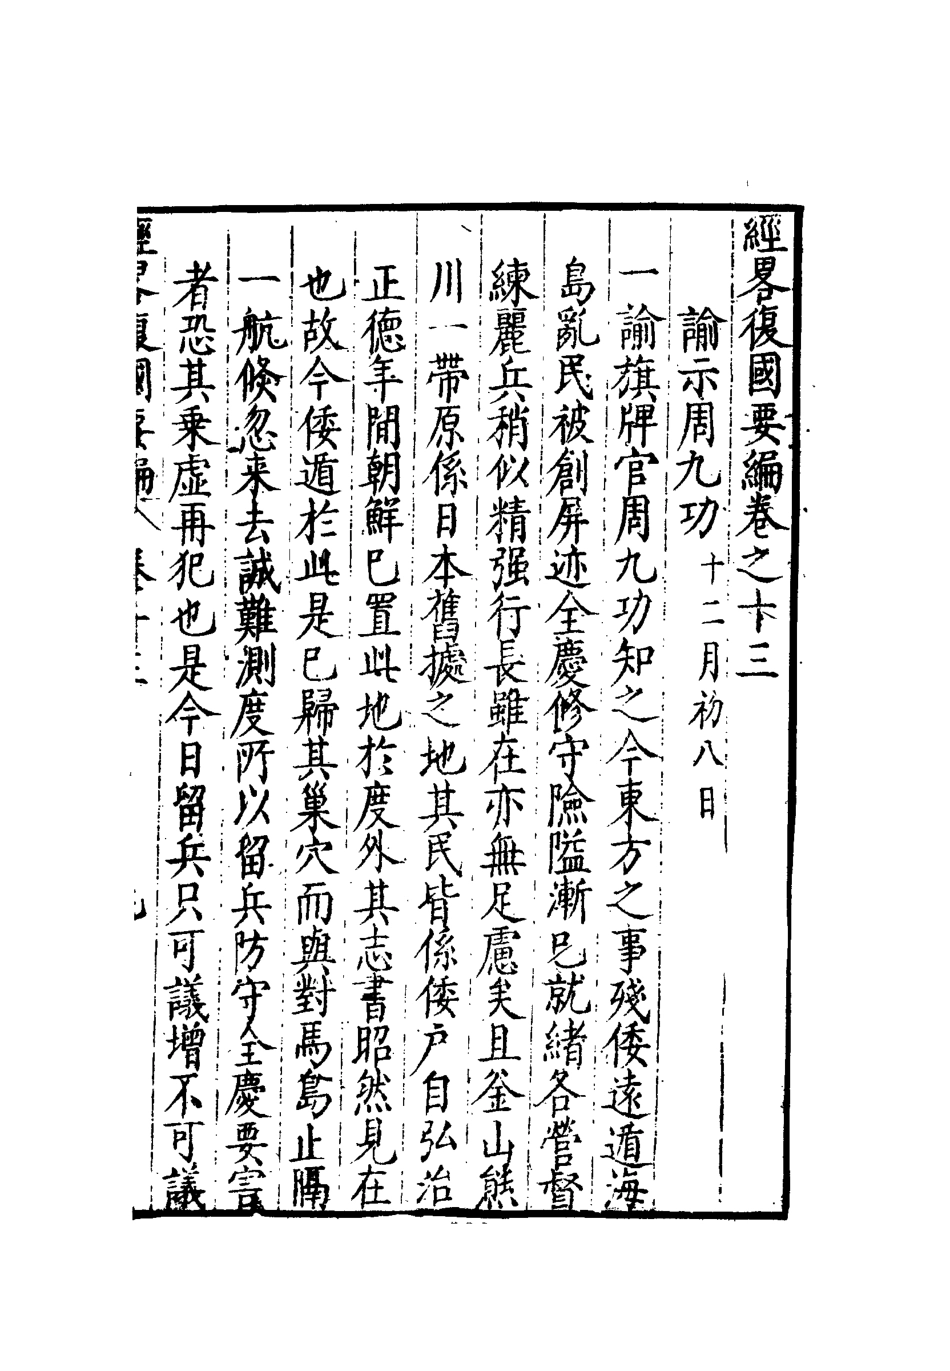 經畧復國要編卷之十三
諭示周九功十二月初八日
一諭旗牌官周九功知之今東方之事殘倭遠遁海
島亂民被創屏迹全慶修守險隘漸已就緒各營督
練麗兵稍似精强行長雖在亦無足慮矣且釜山熊
川一帶原係日本舊據之地其民皆係倭户自弘治
正德年間朝鮮已置此地於度外其志書昭然見在
也故今倭遁於此是已歸其巢穴而與對馬島止隔
一航倏忽来去誠難測度所以留兵防守全慶要害
者恐其乗虚再犯也是今日留兵只可議增不可議
經畧復國要編 卷十三